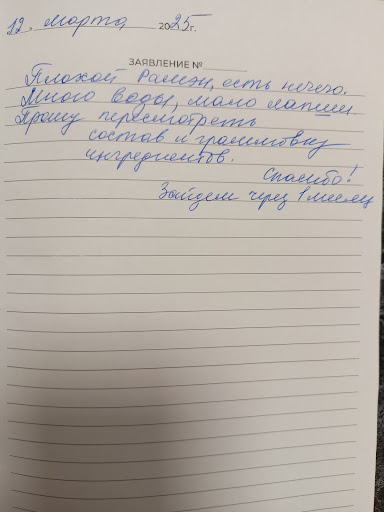 12. марта 2025г.
ЗАЯВЛЕНИЕ №
Плохой Рамэн, есть нечего.
Много воды, мало лапши
Прошу пересмотреть
состав и граммовку
ингредиентов.
Спасибо!
Зайдем через 1 месяц